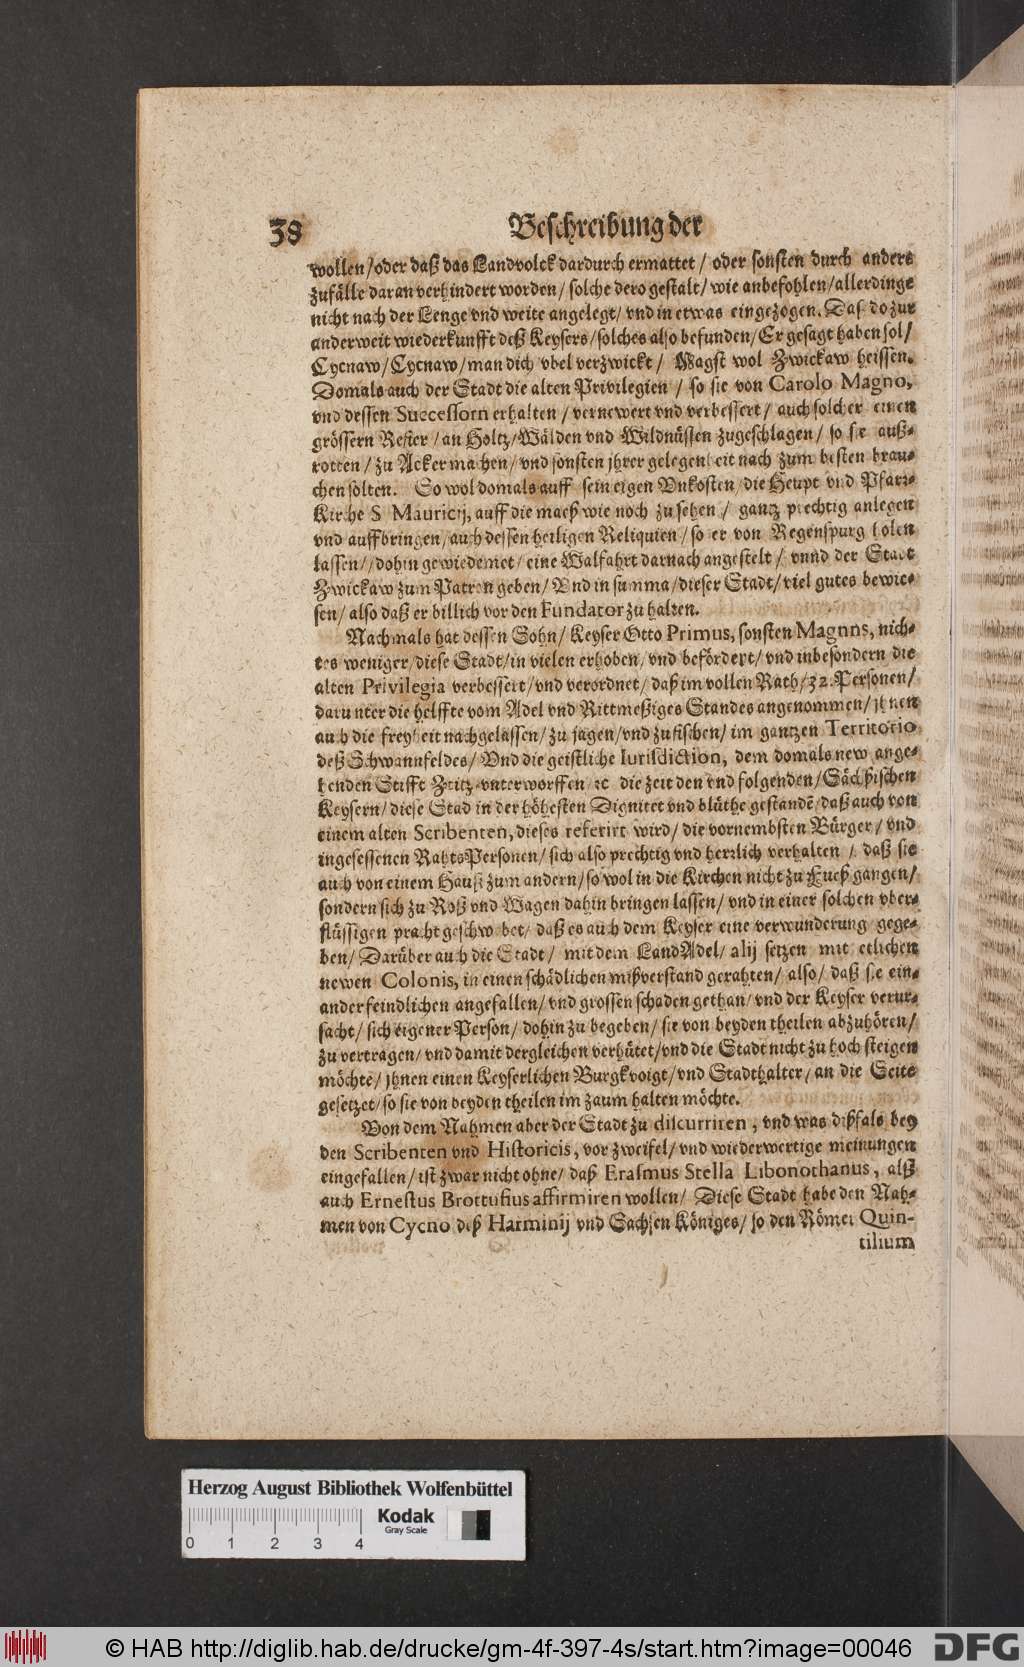 38 Beschreibung der
wollen/oder daß das Landvolck dardurch ermattet/ oder sonsten durch anders
zufälle daran verhindert worden/ solche dero gestalt/ wie anbefohlen/allerdinge
nicht nach der Lenge vnd weite angelegt/ vnd in etwas eingezogen. Das do zur
anderweit wiederkunfft deß Keysers/solches also befunden/Er gesagt haben sol/
Cycnaw/Cycnaw/man dich vbel verzwickt/ Magst wol Zwickaw heissen.
Domals auch der Stadt die alten Privilegien/ so sie von Carolo Magno,
vnd dessen Successorn erhalten/ vernewert vnd verbessert/ auch solcher einen
grössern Refier/an Holtz/Wälden vnd Wildnüssen zugeschlagen/ so sie auß-
rotten/ zu Acker machen/vnd sonsten jhrer gelegenheit nach zum besten brau-
chen solten. So wol domals auff sein eigen Vnkosten/die Heupt vnd Pfarr-
Kirche S Mauricij, auff die maeß wie noch zu sehen/ gantz prechtig anlegen
vnd auffbringen/auch dessen heiligen Reliquien/ so er von Regenspurg holen
lassen//dohin gewiedemet/ eine Walfahrt darnach angestelt/ vnnd der Stadt
Zwickaw zum Patron geben/ Vnd in summa/dieser Stadt/viel gutes bewie-
sen/ also daß er billich vor den Fundator zu halten.
Nachmals hat dessen Sohn/ Keyser Otto Primus, sonsten Magnns, nich-
tes weniger/diese Stadt/in vielen erhoben/vnd befördert/vnd inbesondern die
alten Privilegia verbessert/vnd verordnet/ daß im vollen Rath/32. Personen/
darunter die helffte vom Adel vnd Rittmeßiges Standes angenommen/jhnen
auch die freyheit nachgelassen/ zu jagen/vnd zu fischen/ im gantzen Territorio
deß Schwannfeldes/ Vnd die geistliche Iurisdiction, dem domals new ange-
henden Stifft Zeitz vnterworffen/ ꝛc die zeit den vnd folgenden/Sächßischen
Keysern/ diese Stad in der höhesten Dignitet vnd blüthe gestandẽ/daß auch von
einem alten Scribenten, dieses referirt wird/ die vornembsten Bürger/ vnd
ingesessenen RahtsPersonen/ sich also prechtig vnd herrlich verhalten/ daß sie
auch von einem Hauß zum andern/so wol in die Kirchen nicht zu Fueß gangen/
sondern sich zu Roß vnd Wagen dahin bringen lassen/ vnd in einer solchen vber-
flüssigen pracht geschwebet/ daß es auch dem Keyser eine verwunderung gege-
ben/ Darüber auch die Stadt/ mit dem LandAdel/ alß setzen mit etlichen
newen Colonis, in einen schädlichen mißverstand gerahten/ also/ daß sie ein-
ander feindlichen angefallen/vnd grossen schaden gethan/vnd der Keyser verur-
sacht/ sich eigener Person/ dohin zu begeben/ sie von beyden theilen abzuhören/
zu vertragen/ vnd damit dergleichen verhütet/vnd die Stadt nicht zu hoch steigen
möchte/ jhnen einen Keyserlichen Burgkvoigt/vnd Stadthalter/an die Seite
gesetzet/so sie von beyden theilen im zaum halten möchte.
Von dem Nahmen aber der Stadt zu discurriren, vnd was dißfals bey
den Scribenten vnd Historicis, vor zweifel/ vnd wiederwertige meinungen
eingefallen/ ist zwar nicht ohne/ daß Erasmus Stella Libonothanus, alß
auch Ernestus Brottufius affirmiren wollen/ Diese Stadt habe den Nah-
men von Cycno deß Harminij vnd Sachsen Königes/ so den Römer Quin-
tilium
Herzog August Bibliothek Wolfenbüttel
Kodak
Gray Scale
0 1 2 3 4
© HAB http://diglib.hab.de/drucke/gm-4f-397-4s/start.htm?image=00046 DFG